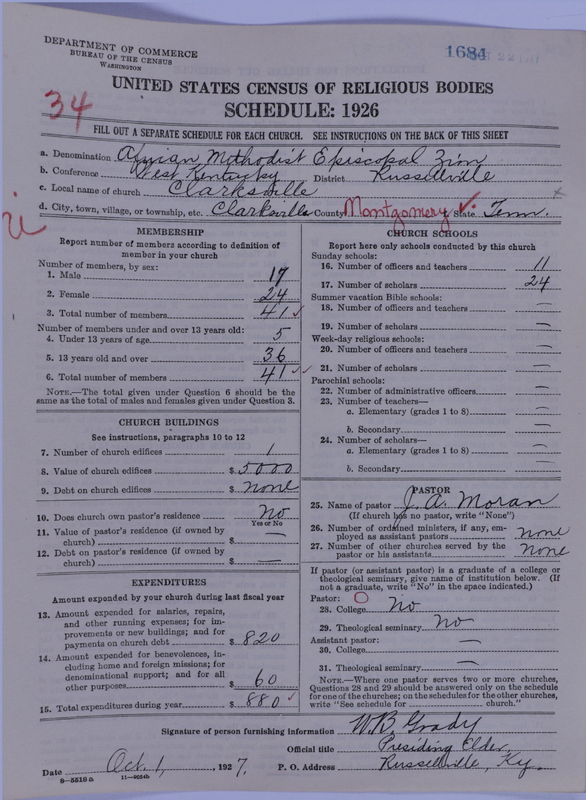 DEPARTMENT OF COMMERCE
BUREAU OF THE CENSUS
WASHINGTON
1684
UNITED STATES CENSUS OF RELIGIOUS BODIES
SCHEDULE: 1926
34
FILL OUT A SEPARATE SCHEDULE FOR EACH CHURCH. SEE INSTRUCTIONS ON THE BACK OF THIS SHEET
a. Denomination African Methodist Episcopal Zion
b. Conference West Kentucky District Russellville
c. Local name of church Clarksville
d. City, town, village, or township, etc. Clarksville County Montgomery State Tenn.
MEMBERSHIP
Report number of members according to definition of
member in your church
Number of members, by sex:
1. Male 17
2. Female 24
3. Total number of members 41
Number of members under and over 13 years old:
4. Under 13 years of age 5
5. 13 years old and over 36
6. Total number of members 41
NOTE.—The total given under Question 6 should be the
same as the total of males and females given under Question 3.
CHURCH BUILDINGS
See instructions, paragraphs 10 to 12
7. Number of church edifices 1
8. Value of church edifices $ 5000
9. Debt on church edifices $ none
10. Does church own pastor's residence? No
Yes or No
11. Value of pastor's residence (if owned by
church) $ —
12. Debt on pastor's residence (if owned by
church) $ —
EXPENDITURES
Amount expended by your church during last fiscal year
13. Amount expended for salaries, repairs,
and other running expenses; for im-
provements or new buildings; and for
payments on church debt $ 820
14. Amount expended for benevolences, in-
cluding home and foreign missions; for
denominational support; and for all
other purposes $ 60
15. Total expenditures during year $ 880
CHURCH SCHOOLS
Report here only schools conducted by this church
Sunday schools:
16. Number of officers and teachers 11
17. Number of scholars 24
Summer vacation Bible schools:
18. Number of officers and teachers —
19. Number of scholars —
Week-day religious schools:
20. Number of officers and teachers —
21. Number of scholars —
Parochial schools:
22. Number of administrative officers —
23. Number of teachers—
a. Elementary (grades 1 to 8) —
b. Secondary —
24. Number of scholars—
a. Elementary (grades 1 to 8) —
b. Secondary —
PASTOR
25. Name of pastor J. A. Moran
(If church has no pastor, write "None")
26. Number of ordained ministers, if any, em-
ployed as assistant pastors none
27. Number of other churches served by the
pastor or his assistants none
If pastor (or assistant pastor) is a graduate of a college or
theological seminary, give name of institution below. (If
not a graduate, write "No" in the space indicated.)
Pastor: O
28. College No
29. Theological seminary No
Assistant pastor:
30. College —
31. Theological seminary —
NOTE.—Where one pastor serves two or more churches,
Questions 28 and 29 should be answered only on the schedule
for one of the churches; on the schedules for the other churches,
write "See schedule for church."
Signature of person furnishing information W. B. Grady
Official title Presiding Elder,
Date Oct. 1, 1927. P. O. Address Russellville, Ky.
8—5518 a